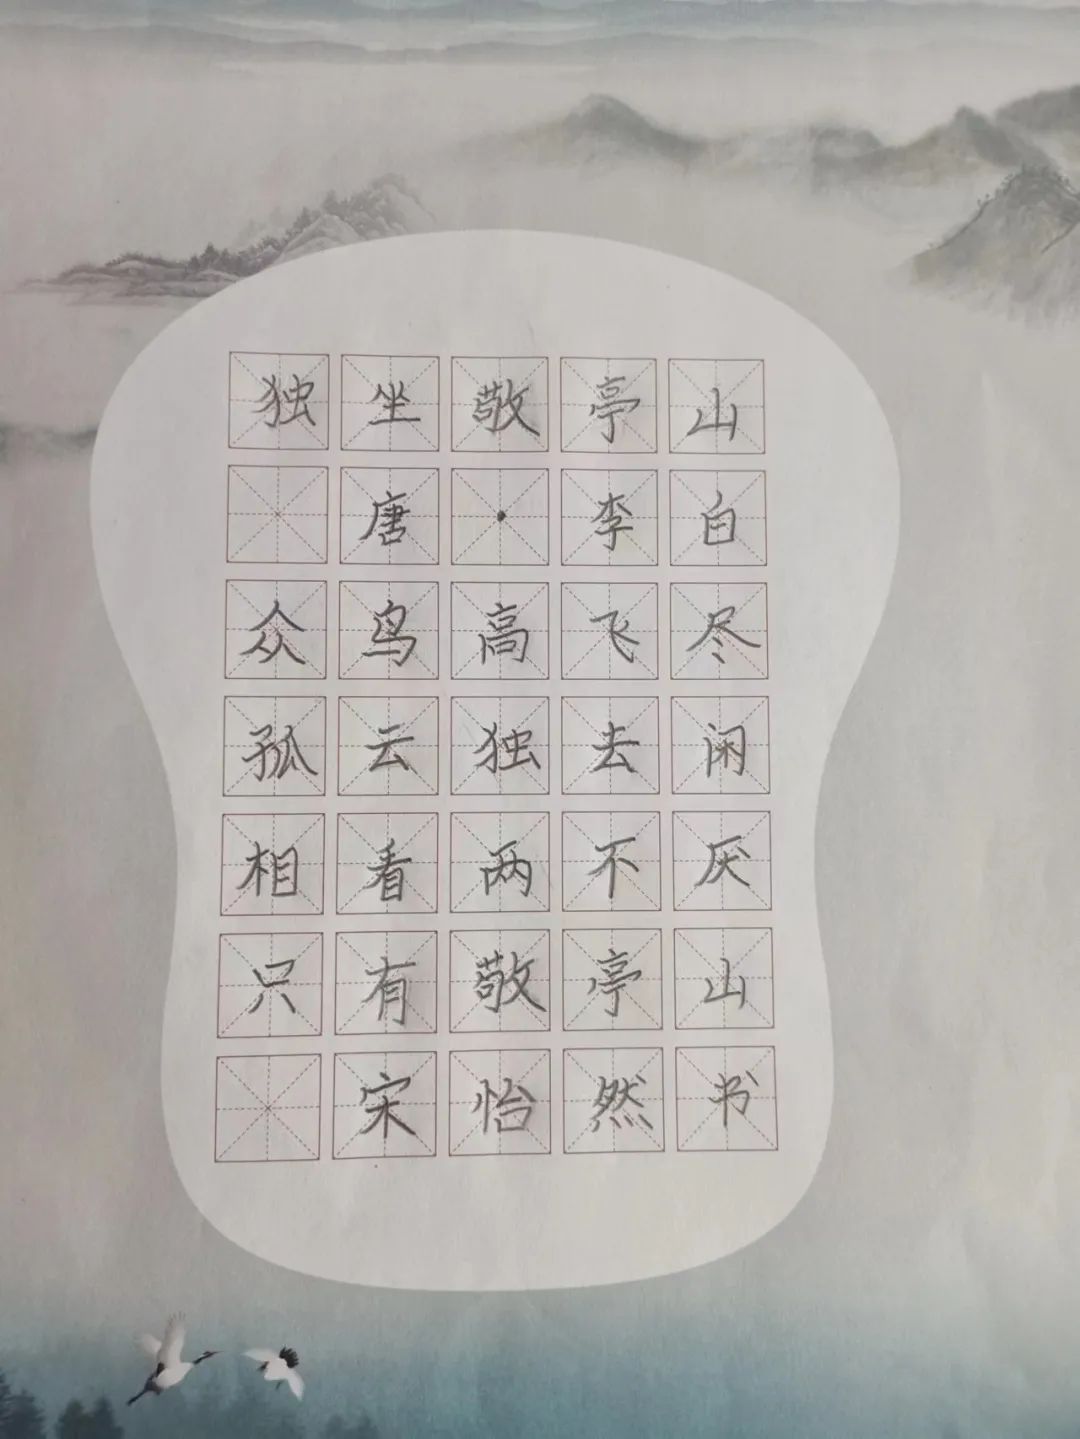 独坐敬亭山
唐·李白
众鸟高飞尽
孤云独去闲
相看两不厌
只有敬亭山
宋怡然书